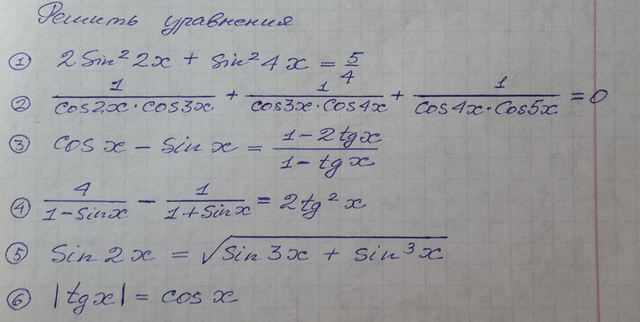 Решить уравнения
① 2 Sin² 2x + sin² 4x = 5/4
② 1/(cos2x · cos3x) + 1/(cos3x · cos4x) + 1/(cos4x · cos5x) = 0
③ cos x − sin x = (1 − 2tgx)/(1 − tgx)
④ 4/(1 − sinx) − 1/(1 + sinx) = 2tg² x
⑤ Sin 2x = √(sin 3x + sin³ x)
⑥ |tg x| = cos x